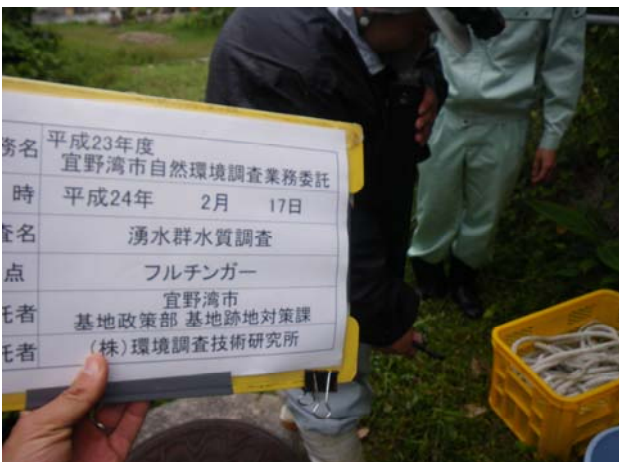 務名 平成23年度
宜野湾市自然環境調査業務委託
時 平成24年 2月 17日
査名 湧水群水質調査
点 フルチンガー
託者 宜野湾市
基地政策部 基地跡地対策課
託者 (株)環境調査技術研究所